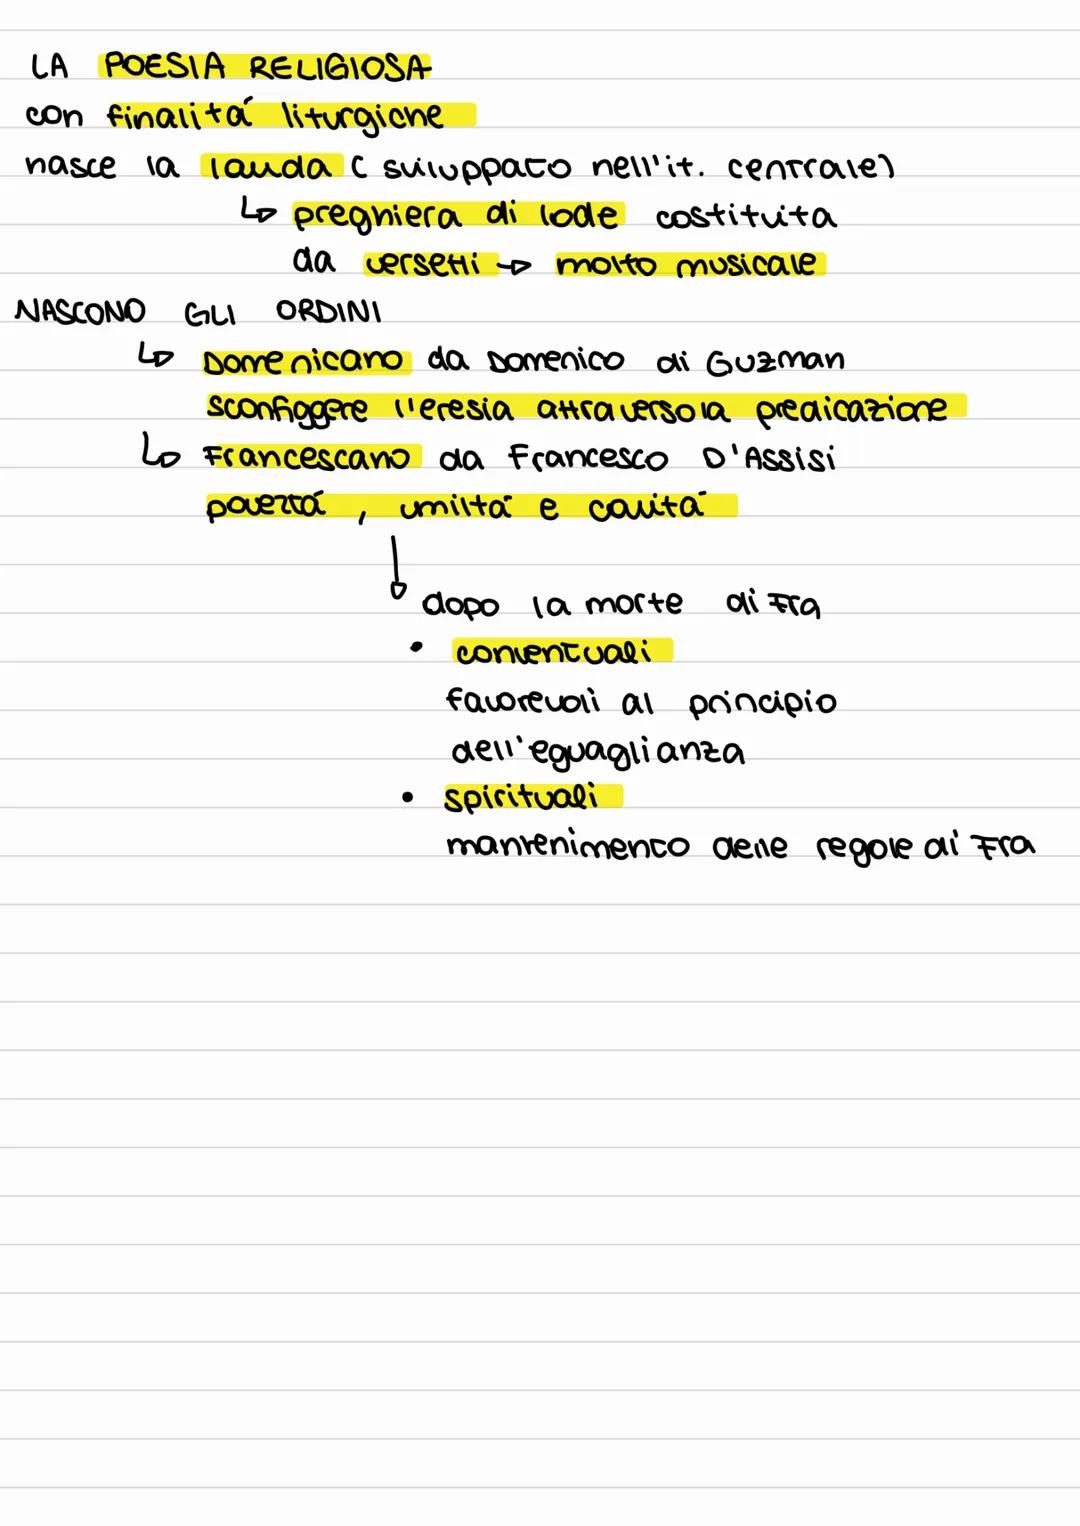 LA POESIA RELIGIOSA
con finalitá liturgiche
nasce la lauda ( sviluppato nell'it. centrale)
↳ preghiera di lode costituita
da versetti → molto musicale
NASCONO GLI ORDINI
↳ Domenicano da Domenico di Guzman
sconfiggere l'eresia attraverso la predicazione
↳ Francescano da Francesco D'Assisi
povertá, umiltá e caritá
↓ dopo la morte di Fra
• conventuali
favorevoli al principio
dell'eguaglianza
• spirituali
mantenimento delle regole di Fra